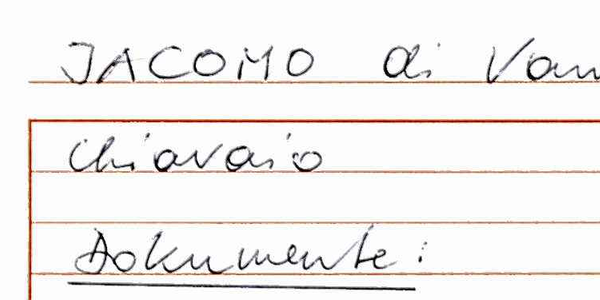 JACOMO di Van
chiavaio
Dokumente: